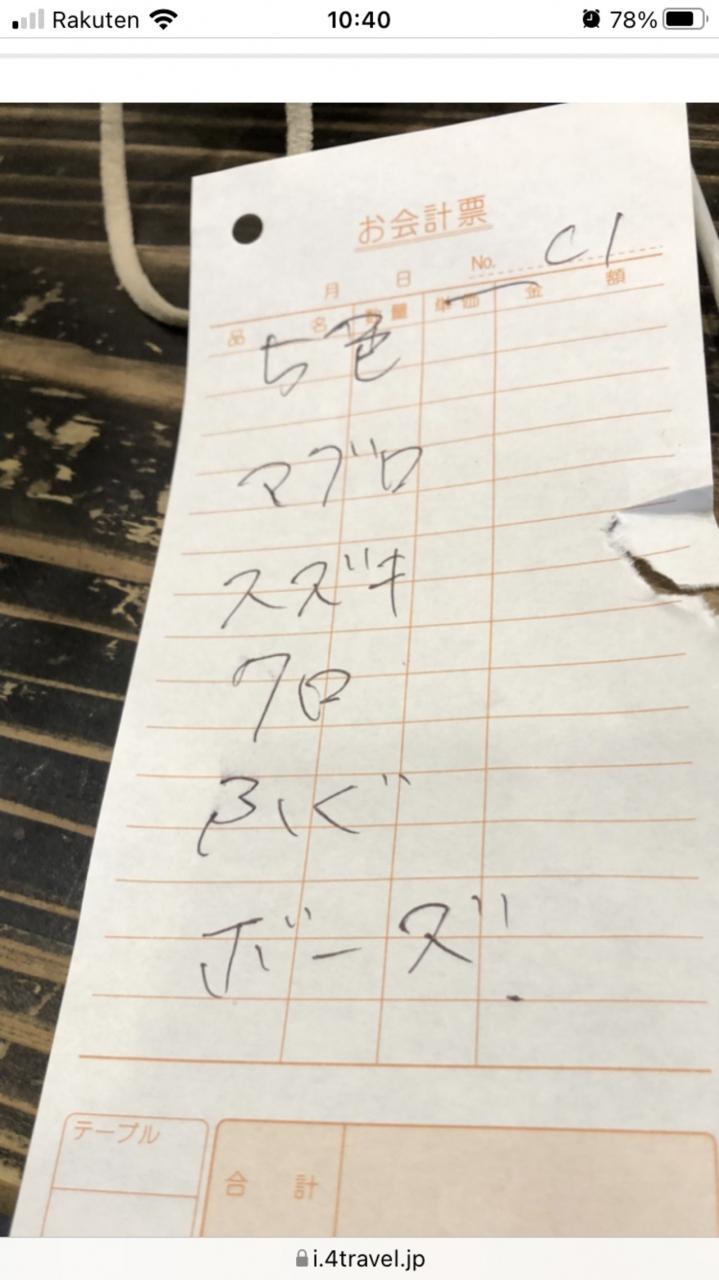 Rakuten 10:40 78%
お会計票
月 日 No. C1
品名 数量 単価 金額
マグロ
スズキ
クロ
ふぐ
テーブル
合計
i.4travel.jp